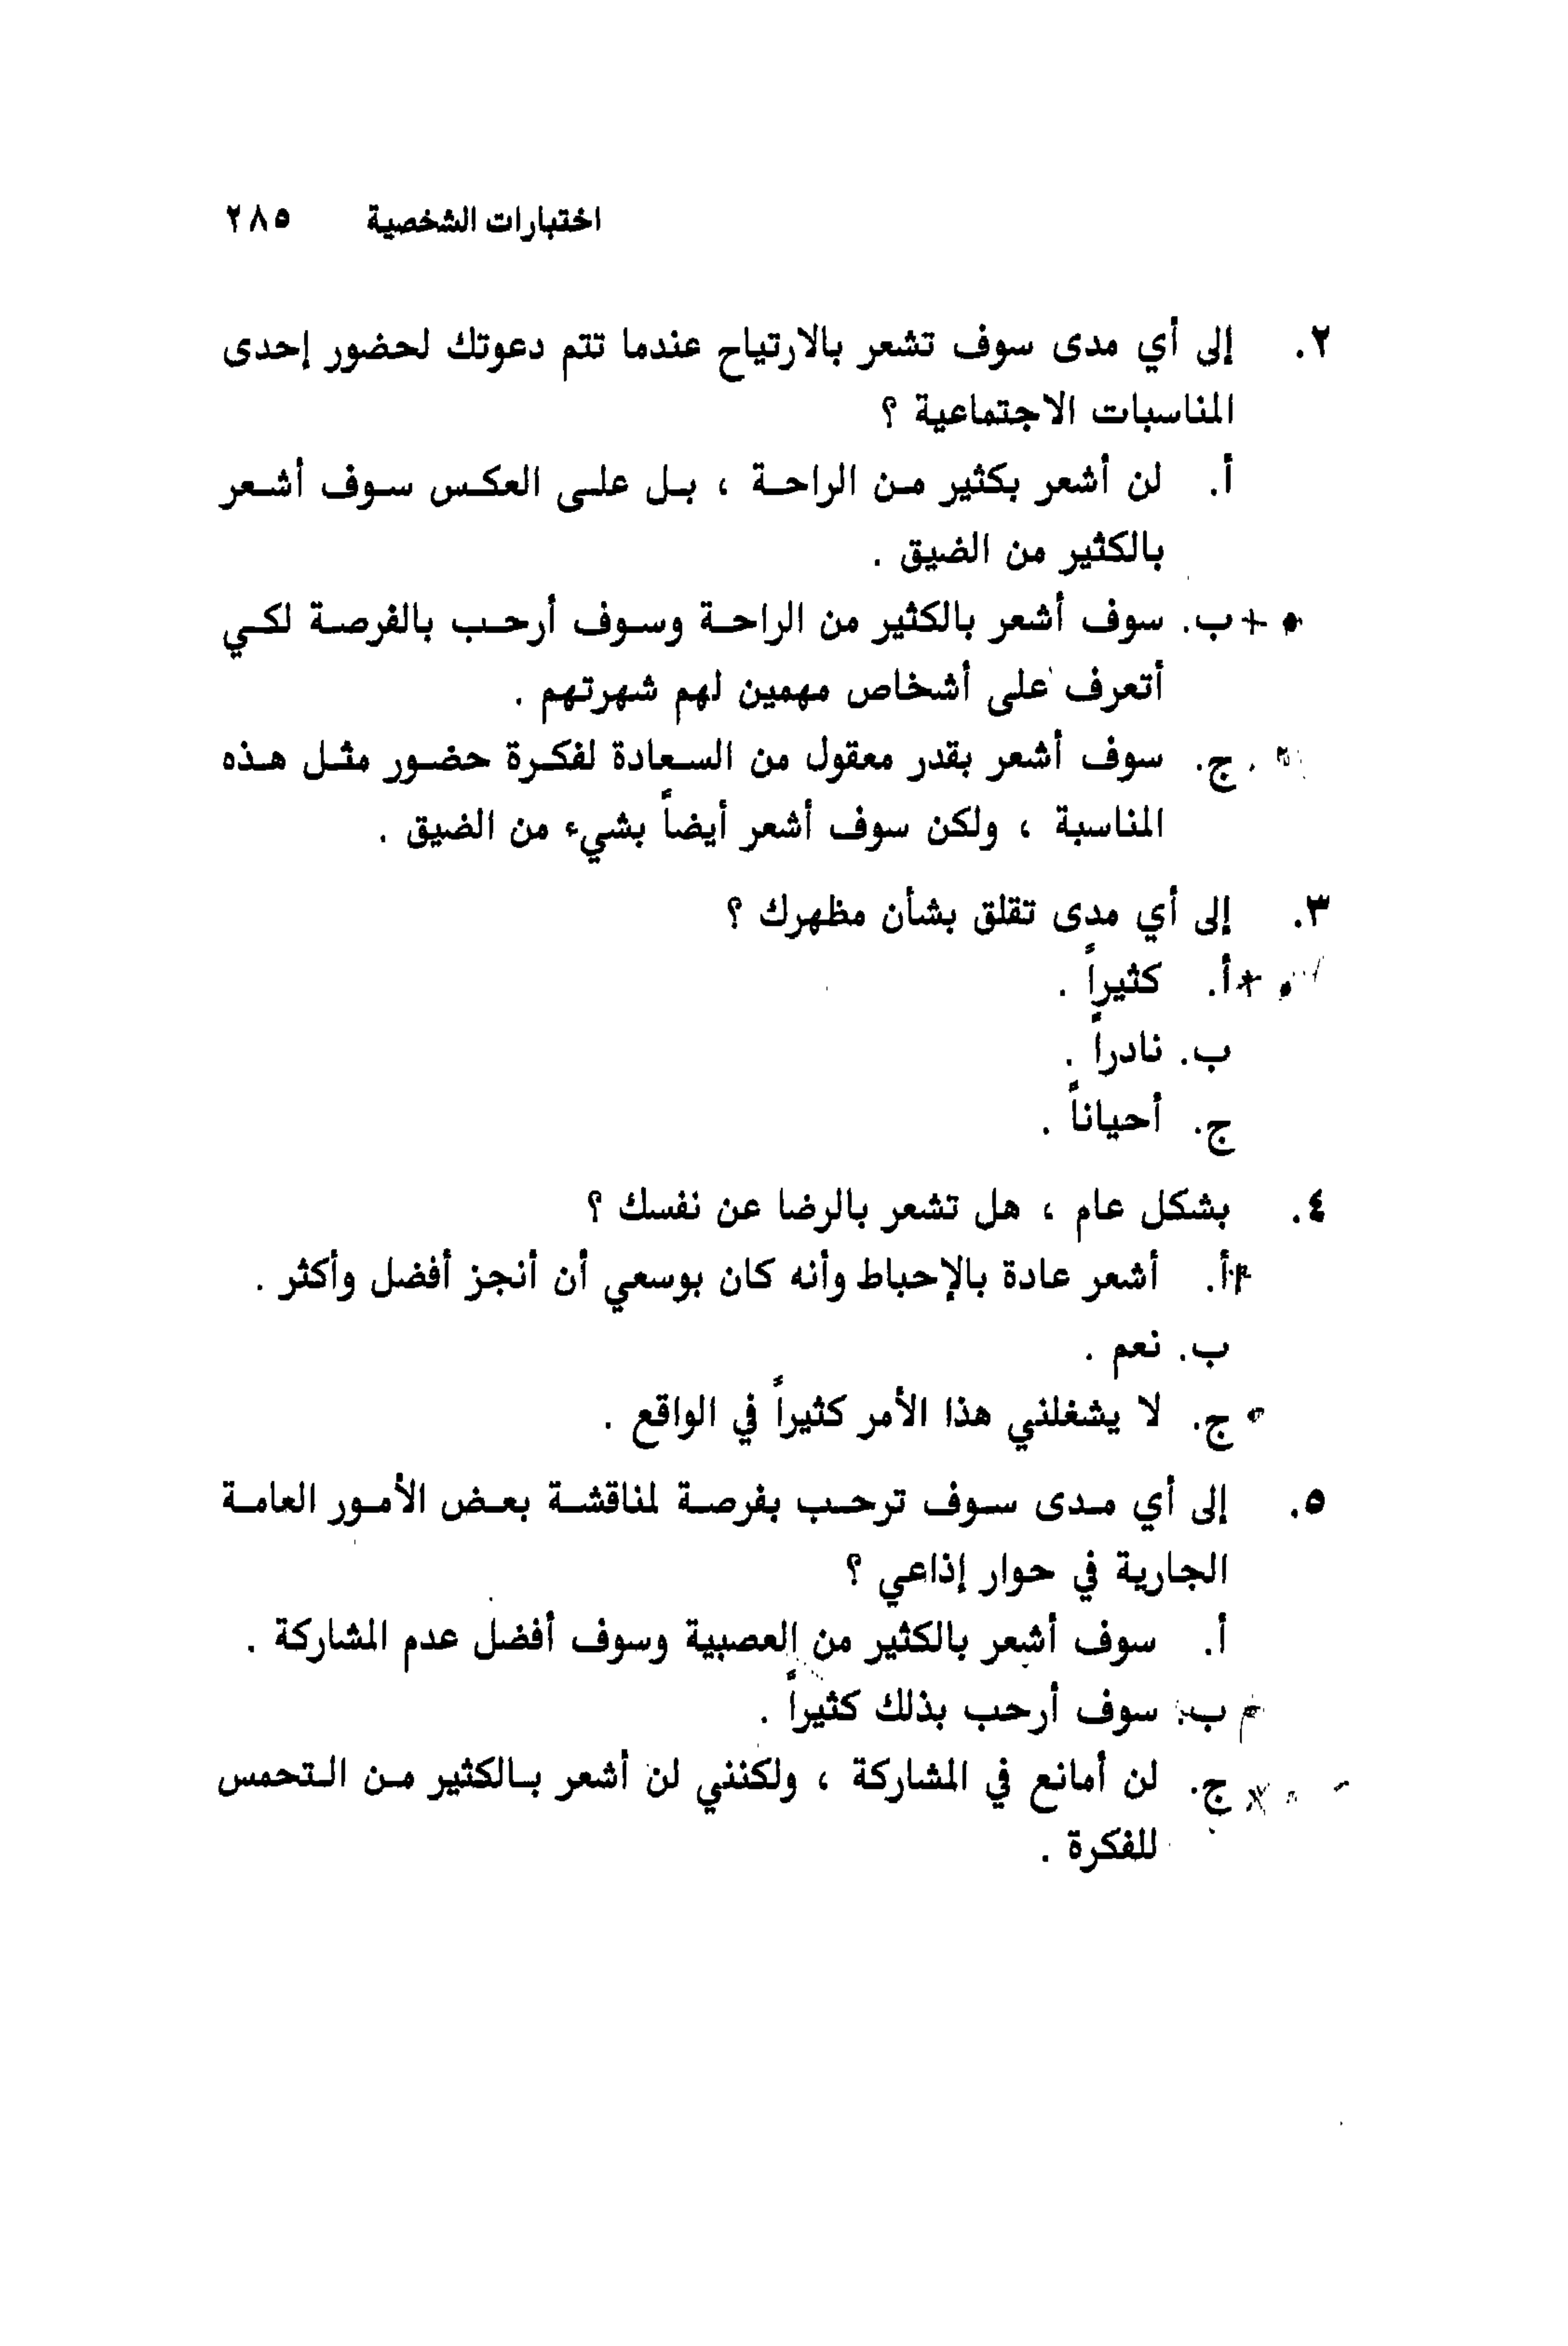 اختبارات الشخصية ٢٨٥
٢. إلى أي مدى سوف تشعر بالارتياح عندما تتم دعوتك لحضور إحدى
المناسبات الاجتماعية ؟
أ. لن أشعر بكثير من الراحة ، بل على العكس سوف أشعر
بالكثير من الضيق .
ب. سوف أشعر بالكثير من الراحة وسوف أرحب بالفرصة لكي
أتعرف على أشخاص مهمين لهم شهرتهم .
ج. سوف أشعر بقدر معقول من السعادة لفكرة حضور مثل هذه
المناسبة ، ولكن سوف أشعر أيضاً بشيء من الضيق .
٣. إلى أي مدى تقلق بشأن مظهرك ؟
أ. كثيراً .
ب. نادراً .
ج. أحياناً .
٤. بشكل عام ، هل تشعر بالرضا عن نفسك ؟
أ. أشعر عادة بالإحباط وأنه كان بوسعي أن أنجز أفضل وأكثر .
ب. نعم .
ج. لا يشغلني هذا الأمر كثيراً في الواقع .
٥. إلى أي مدى سوف ترحب بفرصة لمناقشة بعض الأمور العامة
الجارية في حوار إذاعي ؟
أ. سوف أشعر بالكثير من العصبية وسوف أفضل عدم المشاركة .
ب. سوف أرحب بذلك كثيراً .
ج. لن أمانع في المشاركة ، ولكنني لن أشعر بالكثير من التحمس
للفكرة .